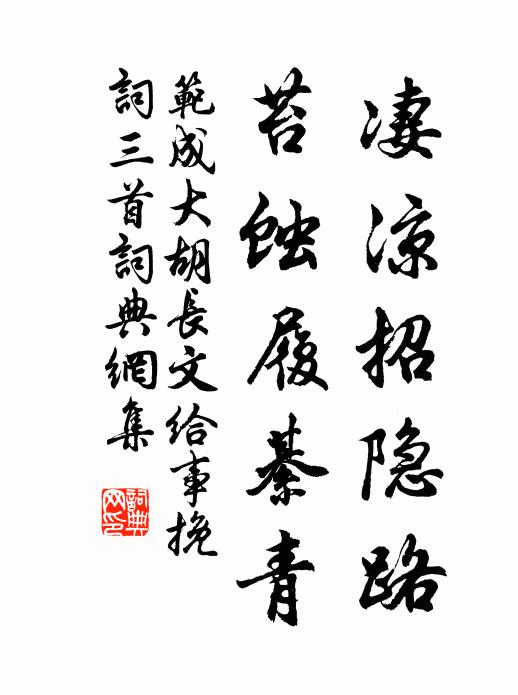 凄涼招隐路
苔蝕履綦青
範成大胡長文給事挽
詞三首詞典網集
詞典网印